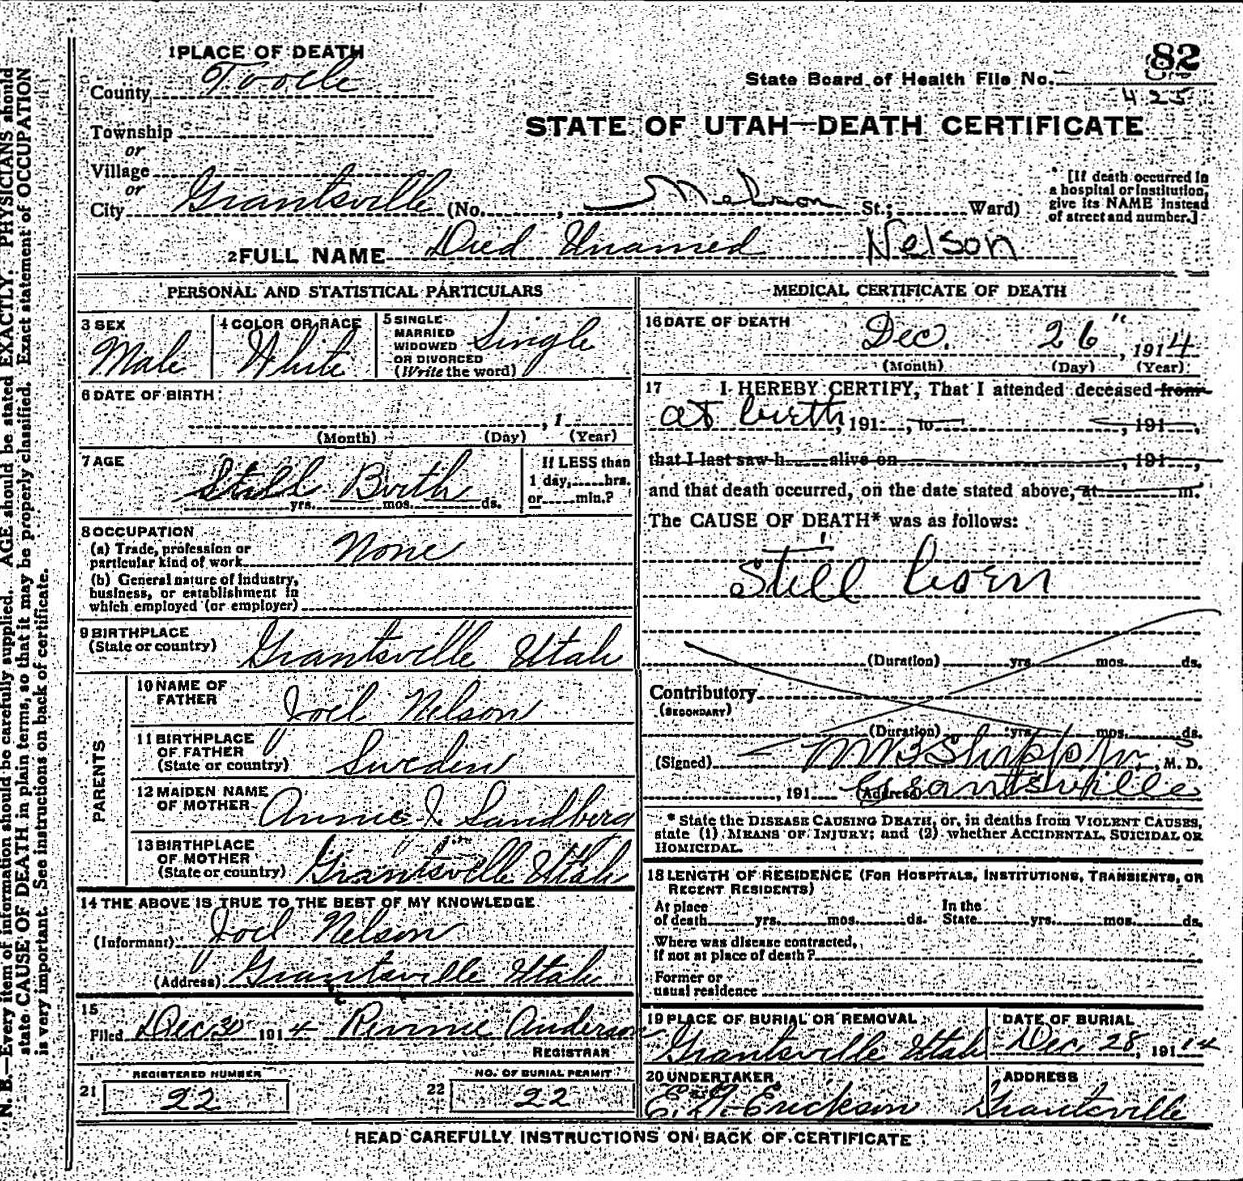 1 PLACE OF DEATH
82
County Tooele
State Board of Health File No.
425
Township
or
STATE OF UTAH—DEATH CERTIFICATE
Village
or
City Grantsville (No. , St.; Ward)
* [If death occurred in
a hospital or institution,
give its NAME instead
of street and number.]
2 FULL NAME Died Unamed Nelson
PERSONAL AND STATISTICAL PARTICULARS
3 SEX
Male
4 COLOR OR RACE
White
5 SINGLE
MARRIED
WIDOWED
OR DIVORCED
(Write the word)
Single
6 DATE OF BIRTH
, 1
(Month) (Day) (Year)
7 AGE
Still Birth
yrs. mos. ds.
If LESS than
1 day, hrs.
or min.?
8 OCCUPATION
(a) Trade, profession or
particular kind of work None
(b) General nature of Industry,
business, or establishment in
which employed (or employer)
9 BIRTHPLACE
(State or country) Grantsville Utah
PARENTS
10 NAME OF
FATHER Joel Nelson
11 BIRTHPLACE
OF FATHER
(State or country) Sweden
12 MAIDEN NAME
OF MOTHER Annie J. Sandberg
13 BIRTHPLACE
OF MOTHER
(State or country) Grantsville Utah
14 THE ABOVE IS TRUE TO THE BEST OF MY KNOWLEDGE
(Informant) Joel Nelson
(Address) Grantsville Utah
15
Filed Dec 30 1914 Anderson
REGISTRAR
REGISTERED NUMBER
21 22
NO. OF BURIAL PERMIT
22 22
MEDICAL CERTIFICATE OF DEATH
16 DATE OF DEATH
Dec. 26", 1914
(Month) (Day) (Year)
17 I HEREBY CERTIFY, That I attended deceased from
at birth, 191 , to , 191 ,
that I last saw h alive on , 191 ,
and that death occurred, on the date stated above, at m.
The CAUSE OF DEATH* was as follows:
Still born
(Duration) yrs. mos. ds.
Contributory
(SECONDARY)
(Duration) yrs. mos. ds.
(Signed) , M. D.
, 191 (Address) Grantsville
* State the DISEASE CAUSING DEATH, or, in deaths from VIOLENT CAUSES,
state (1) MEANS OF INJURY; and (2) whether ACCIDENTAL, SUICIDAL OR
HOMICIDAL.
18 LENGTH OF RESIDENCE (FOR HOSPITALS, INSTITUTIONS, TRANSIENTS, OR
RECENT RESIDENTS)
At place
of death yrs. mos. ds.
In the
State yrs. mos. ds.
Where was disease contracted,
if not at place of death?
Former or
usual residence
19 PLACE OF BURIAL OR REMOVAL
Grantsville Utah
DATE OF BURIAL
Dec. 28, 1914
20 UNDERTAKER
Erickson
ADDRESS
Grantsville
READ CAREFULLY INSTRUCTIONS ON BACK OF CERTIFICATE
N. B.—Every item of information should be carefully supplied. AGE should be stated EXACTLY. PHYSICIANS should
state CAUSE OF DEATH in plain terms, so that it may be properly classified. Exact statement of OCCUPATION
is very important. See instructions on back of certificate.